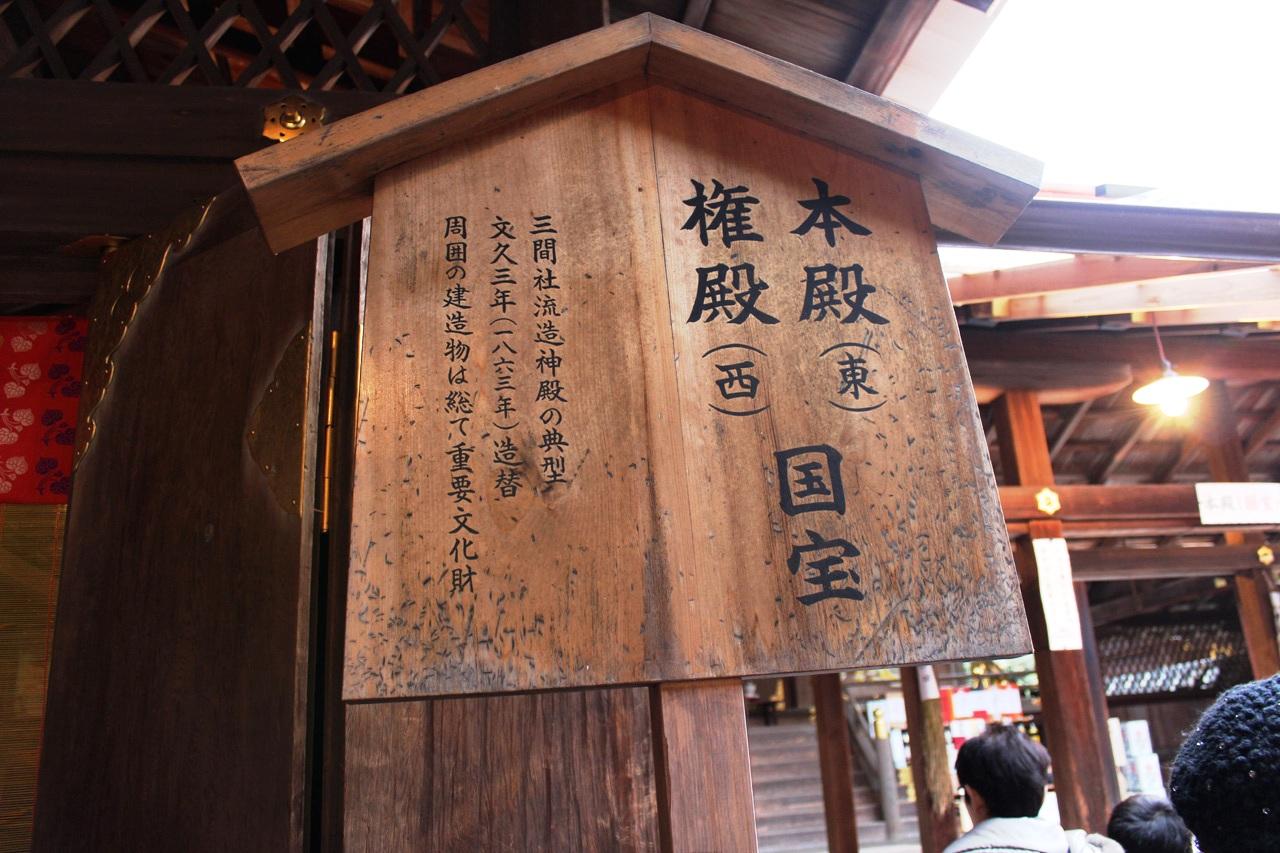 本殿（東）
権殿（西）
国宝
三間社流造神殿の典型
文久三年（一八六三年）造替
周囲の建造物は総て重要文化財